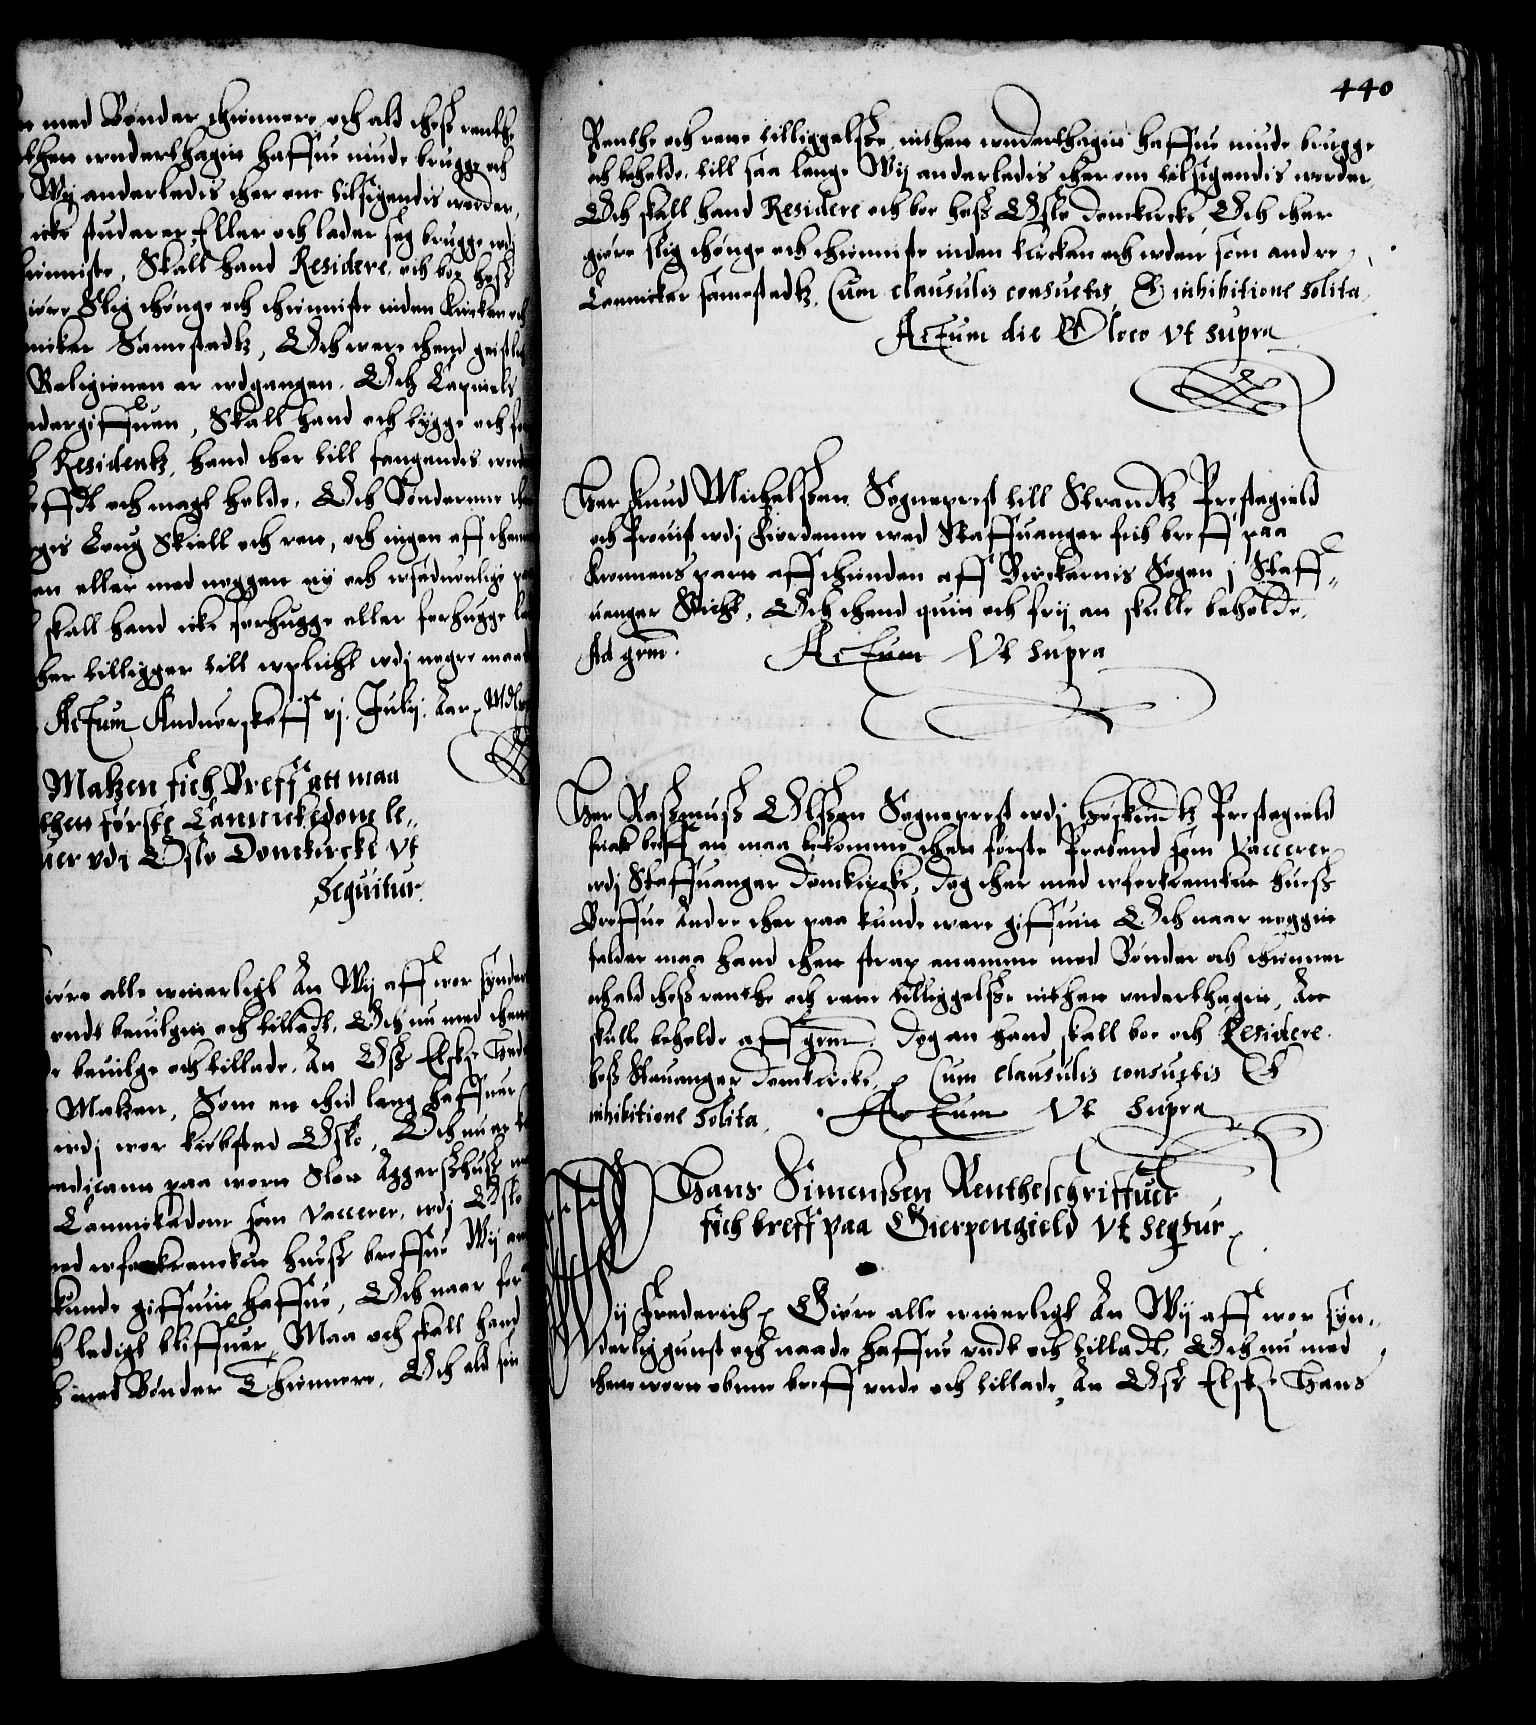 med Bønder thiennere och ald thess renthe
then wnderthagin haffue niude brugge och
Wij anderledis ther om tilsigendis worder,
icke studerer Eller och lader seg brugge wdj
thienniste, Skall hand Residere och boe hoss
giøre Slig thenge och thienniste inden Kircken och
niker Samestedtz, Och were thend geistlig
Religionen er wdgangen. Och Capittels
wdergiffuen, Skall hand och bygge och for
Residentz, hand ther till fangendis worder
hefft och magt holde. Och Bønderne
Loug Skiell och ræt, och ingen aff thennom
eller med noggen ny och wseduonlige
skall hand icke forhugge eller forhugge lade
ther tilligger till wplicht wdj nogre maade
Actum Anduorskoff vj. Julij. Aar p. Mdlx
Matzen fich Breff att maa
then første Cannickedom le,,
uer vdi Oslo Domkircke Vt
Sequitur.
giøre alle witterligt At Wij aff wor synder
undt beuilget och tilladt, Och nu med thette
beuilge och tillade, At Oss Elske. her
Matzen, Som en thid lang haffuer
wdj wor kiøbsted Oslo, Och nu er
predicant paa wort Slot Aggershuss
Cannickedom som vacerer, wdj Oslo
med wforkrencket huess breffue Wij an
kunde giffuit haffue, Och naar for
ledigt bliffuer, Maa och skall hand
med Bønder Thiennere, Och ald sin
440
Renthe och rette tilliggelsse, intthet wnderthagit haffue niude brugge
och beholde, till saa lenge Wij anderledis ther om tilsigendis worder,
Och skall hand Residere och boe hoss Oslo domkircke, Och ther
giøre slig thenge och thienniste inden kircken och wden som andre
Canniker samestedtz, Cum clausulis consuetis, Et inhibitione solita,
Actum die Et loco vt supra
Her Knud Michelssen Sogneprest till Strandtz Prestegield
och Prouist wdj Fierdenne wed Staffuanger fich breff paa
Kronens part aff thienden aff Birckernis Sogen j Staff,,
uanger Sticht, Och thend quit och frij at skulle beholde,
Ad grm. Actum Vt supra
Her Rassmuss Olssen Sogneprest wdj Prestegield
fick breff at maa bekomme then første Prebend som Vaccerer
wdj Staffuanger domkircke, dog ther med wforkrencket huess
Breffue Andre ther paa kunde were giffuit Och naar noggit
falder maa hand then strax anamme med Bønder och thienner
och ald thess renthe och rette tilliggelsse intthet vnderthagit, At
skulle beholde aff grm. Dog at hand skall boe och Residere.
hoss Stauanger domkircke, p Cum clausulis consuetis Et
inhibitione solita, Actum Vt supra
Hans Simenssen Rentheschriffuer
fich breff paa Gierpengield vt seqtur
Wij Frederich p Giøre alle witterligt At Wij aff wor syn,,
derlig gunst och naade haffue vndt och tilladt, Och nu med
thette wort obne breff vnde och tillade, At Oss Elske. Hans